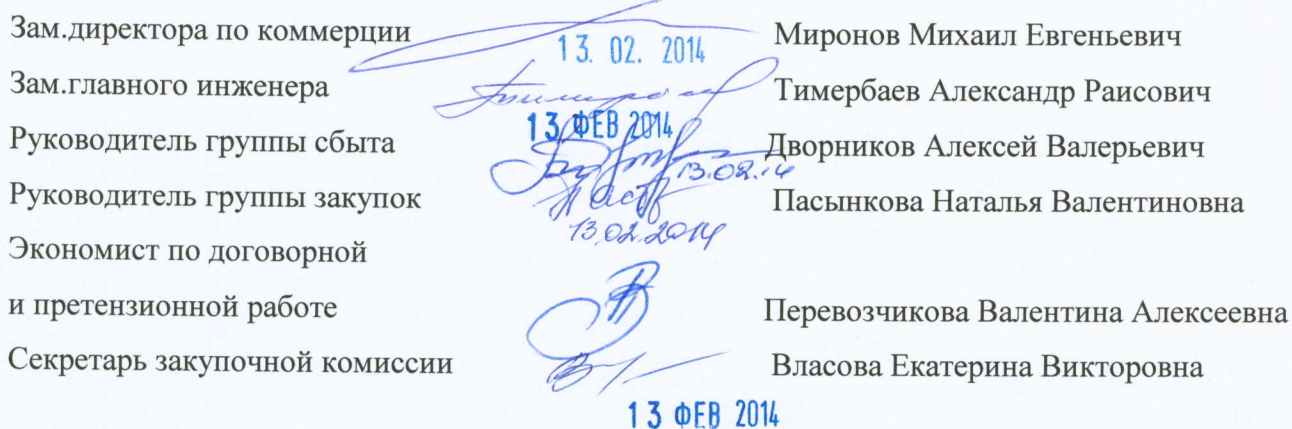 Зам.директора по коммерции 13. 02. 2014 Миронов Михаил Евгеньевич
Зам.главного инженера Тимербаев Александр Раисович
13 ФЕВ 2014
Руководитель группы сбыта 13.02.14 Дворников Алексей Валерьевич
Руководитель группы закупок Пасынкова Наталья Валентиновна
13.02.2014
Экономист по договорной
и претензионной работе Перевозчикова Валентина Алексеевна
Секретарь закупочной комиссии Власова Екатерина Викторовна
13 ФЕВ 2014